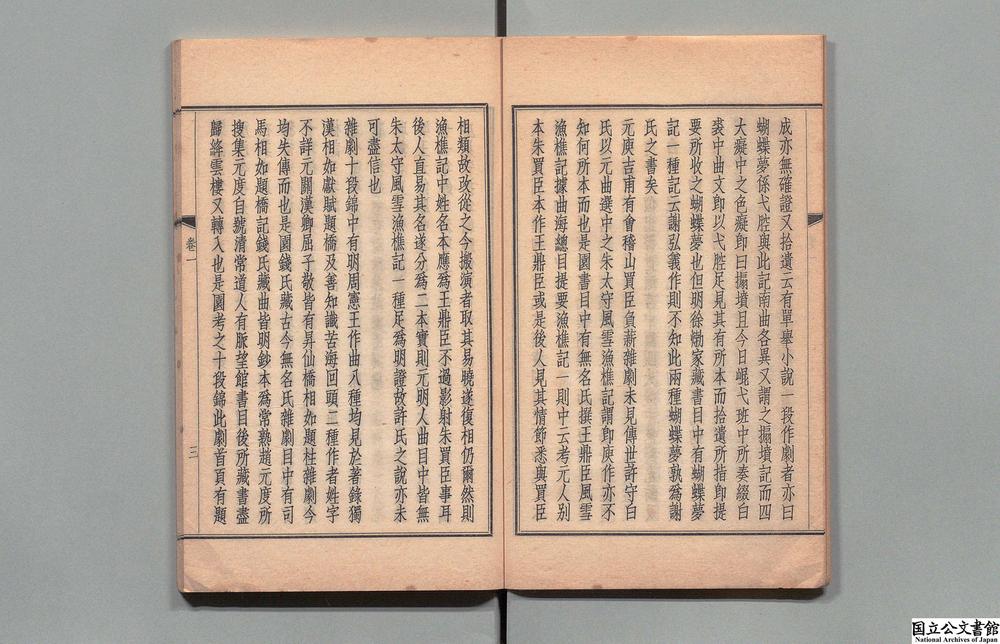 成亦無確證又拾遺云有單舉小說一段作劇者亦曰
蝴蝶夢係弋腔與此記南曲各異又謂之搧墳記而四
大癡中之色癡卽曰搧墳且今日崐弋班中所奏綴白
裘中曲文卽以弋腔足見其有所本而拾遺所指卽提
要所收之蝴蝶夢也但明徐㶿家藏書目中有蝴蝶夢
記一種記云謝弘義作則不知此兩種蝴蝶夢孰爲謝
氏之書矣
元庾吉甫有會稽山買臣負薪雜劇未見傳世許守白
氏以元曲選中之朱太守風雪漁樵記謂卽庾作亦不
知何所本而也是園書目中有無名氏撰王鼎臣風雪
漁樵記據曲海總目提要漁樵記一則中云考元人別
本朱買臣本作王鼎臣或是後人見其情節悉與買臣
相類故改從之今搬演者取其易曉遂復相仍爾然則
漁樵記中姓名本應爲王鼎臣不過影射朱買臣事耳
後人直易其名遂分爲二本實則元明人曲目中皆無
朱太守風雪漁樵記一種足爲明證故許氏之說亦未
可盡信也
雜劇十段錦中有明周憲王作曲八種均見於著錄獨
漢相如獻賦題橋及善知識苦海回頭二種作者姓字
不詳元關漢卿屈子敬皆有昇仙橋相如題柱雜劇今
均失傳而也是園錢氏藏古今無名氏雜劇目中有司
馬相如題橋記錢氏藏曲皆明鈔本爲常熟趙元度所
搜集元度自號清常道人有脈望館書目後所藏書盡
歸絳雲樓又轉入也是園考之十段錦此劇首頁有題
卷一
三
国立公文書館
National Archives of Japan